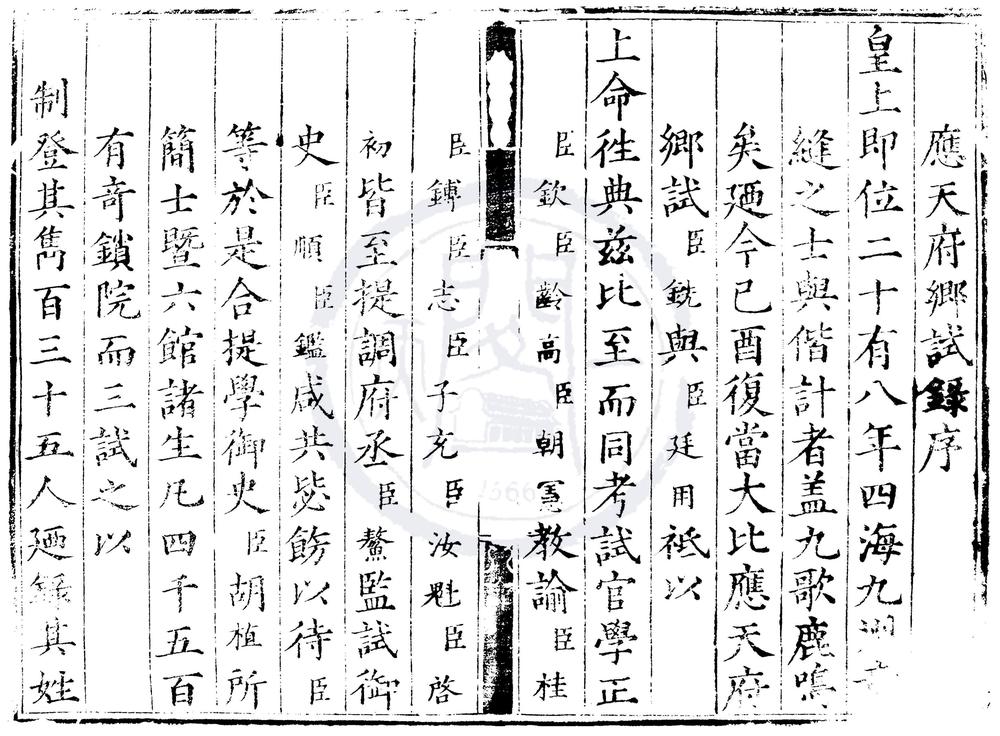 應天府鄉試錄序
皇上即位二十有八年四海九
縫之士與偕計者盖九歌鹿鳴
矣廼今己酉復當大比應天府
鄉試臣銑與臣廷用祗以
上命徃典兹比至而同考試官學正
臣欽臣齡高臣朝憲教諭臣桂
臣鏄臣志臣子充臣汝魁臣啓
初皆至提調府丞臣鰲監試御
史臣順臣鑑咸共毖飭以待臣
等於是合提學御史臣胡植所
簡士暨六館諸生凡四千五百
有竒鎖院而三試之以
制登其雋百三十五人廼錄其姓